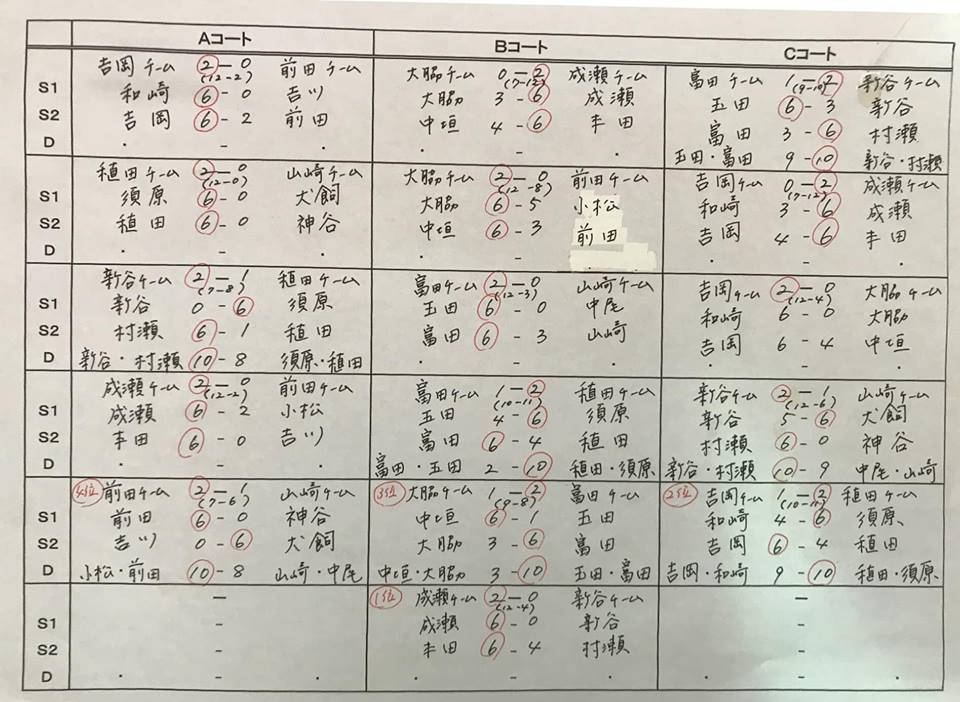 Aコート Bコート Cコート
吉岡チーム 2-0 前田チーム 大脇チーム 0-2 成瀬チーム 富田チーム 1-2 新谷チーム
(12-2) (7-12) (9-10)
S1 和崎 6-0 吉川 大脇 3-6 成瀬 玉田 6-3 新谷
S2 吉岡 6-2 前田 中垣 4-6 丰田 富田 3-6 村瀬
D ・ - ・ ・ - ・ 玉田・富田 9-10 新谷・村瀬
種田チーム 2-0 山崎チーム 大脇チーム 2-0 前田チーム 吉岡チーム 0-2 成瀬チーム
(12-0) (12-8) (7-12)
S1 須原 6-0 犬飼 大脇 6-5 小松 和崎 3-6 成瀬
S2 種田 6-0 神谷 中垣 6-3 前田 吉岡 4-6 丰田
D ・ - ・ ・ - ・ ・ - ・
新谷チーム 2-1 種田チーム 富田チーム 2-0 山崎チーム 吉岡チーム 2-0 大脇チーム
(7-8) (12-3) (12-4)
S1 新谷 0-6 須原 玉田 6-0 中尾 和崎 6-0 大脇
S2 村瀬 6-1 種田 富田 6-3 山崎 吉岡 6-4 中垣
D 新谷・村瀬 10-8 須原・種田 ・ - ・ ・ - ・
成瀬チーム 2-0 前田チーム 富田チーム 1-2 種田チーム 新谷チーム 2-1 山崎チーム
(12-2) (10-11) (12-6)
S1 成瀬 6-2 小松 玉田 4-6 須原 新谷 5-6 犬飼
S2 丰田 6-0 吉川 富田 6-4 種田 村瀬 6-0 神谷
D ・ - ・ 富田・玉田 2-10 種田・須原 新谷・村瀬 10-9 中尾・山崎
4位 前田チーム 2-1 山崎チーム 3位 大脇チーム 1-2 富田チーム 2位 吉岡チーム 1-2 種田チーム
(7-6) (9-8) (10-11)
S1 前田 6-0 神谷 中垣 6-1 玉田 和崎 4-6 須原
S2 吉川 0-6 犬飼 大脇 3-6 富田 吉岡 6-4 種田
D 小松・前田 10-8 山崎・中尾 中垣・大脇 3-10 玉田・富田 吉岡・和崎 9-10 種田・須原
- 1位 成瀬チーム 2-0 新谷チーム -
(12-4)
S1 - 成瀬 6-0 新谷 -
S2 - 丰田 6-4 村瀬 -
D ・ - ・ ・ - ・ ・ - ・